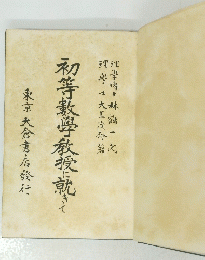 理學博士 林鶴一
理學士 大
初等數學教授に就きて
東京 大倉書店發行